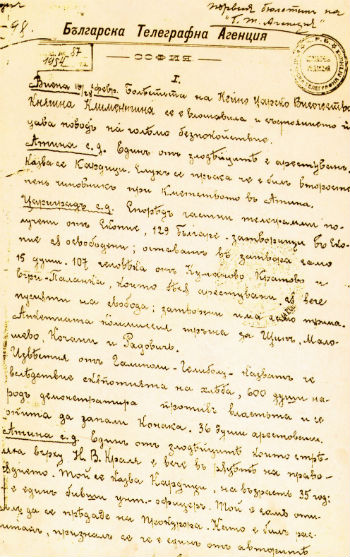 първия бюлетин на
"Б. Т. Агенция"
-98.
Българска Телеграфна Агенция
СОФИЯ
I.
Виена 16/28 февр. Болѣстьта на Нейно Царско Височество
Княгиня Клементина се е влошила и състоянието ѝ
дава поводъ на голѣмо безпокойствие.
Атина с. д. Единъ отъ злодѣйците е арестуванъ.
Казва се Кардици. Слухъ се пръсва че е билъ второсте-
пенъ чиновникъ при Кметството въ Атина.
Цариградъ с. д. Споредъ частни телеграми по-
лучени отъ Скопие, 129 българе-затворници въ Ско-
пие са освободени; оставатъ въ затвора само
15 души. 107 человѣка отъ Куманово Кратово и
Егри-Паланка, които бѣха арестувани, са вече
пуснати на свобода; затворени има само трима.
Анкетната комисия тръгна за Щипъ, Мале-
шево, Кочани и Радовичъ.
Известия отъ Галиполи-Гелиболу казватъ че
вследствие скѫпотията на хлѣба, 600 души на-
родъ демонстрира противъ властьта и се
опита да запали Конака. 36 души арестовани.
Атина с. д. Единъ отъ злодѣйците които стре-
ляха върху Н. В. Краля е вече въ рѫцѣте на право-
сѫдието. Той се казва Кардици, на възрасть 35 год;
е единъ бивши унт.-офицеръ. Той е самъ оти-
шълъ да се предаде на
Като е билъ рас-
питанъ, призналъ се че е единъ отъ авторите